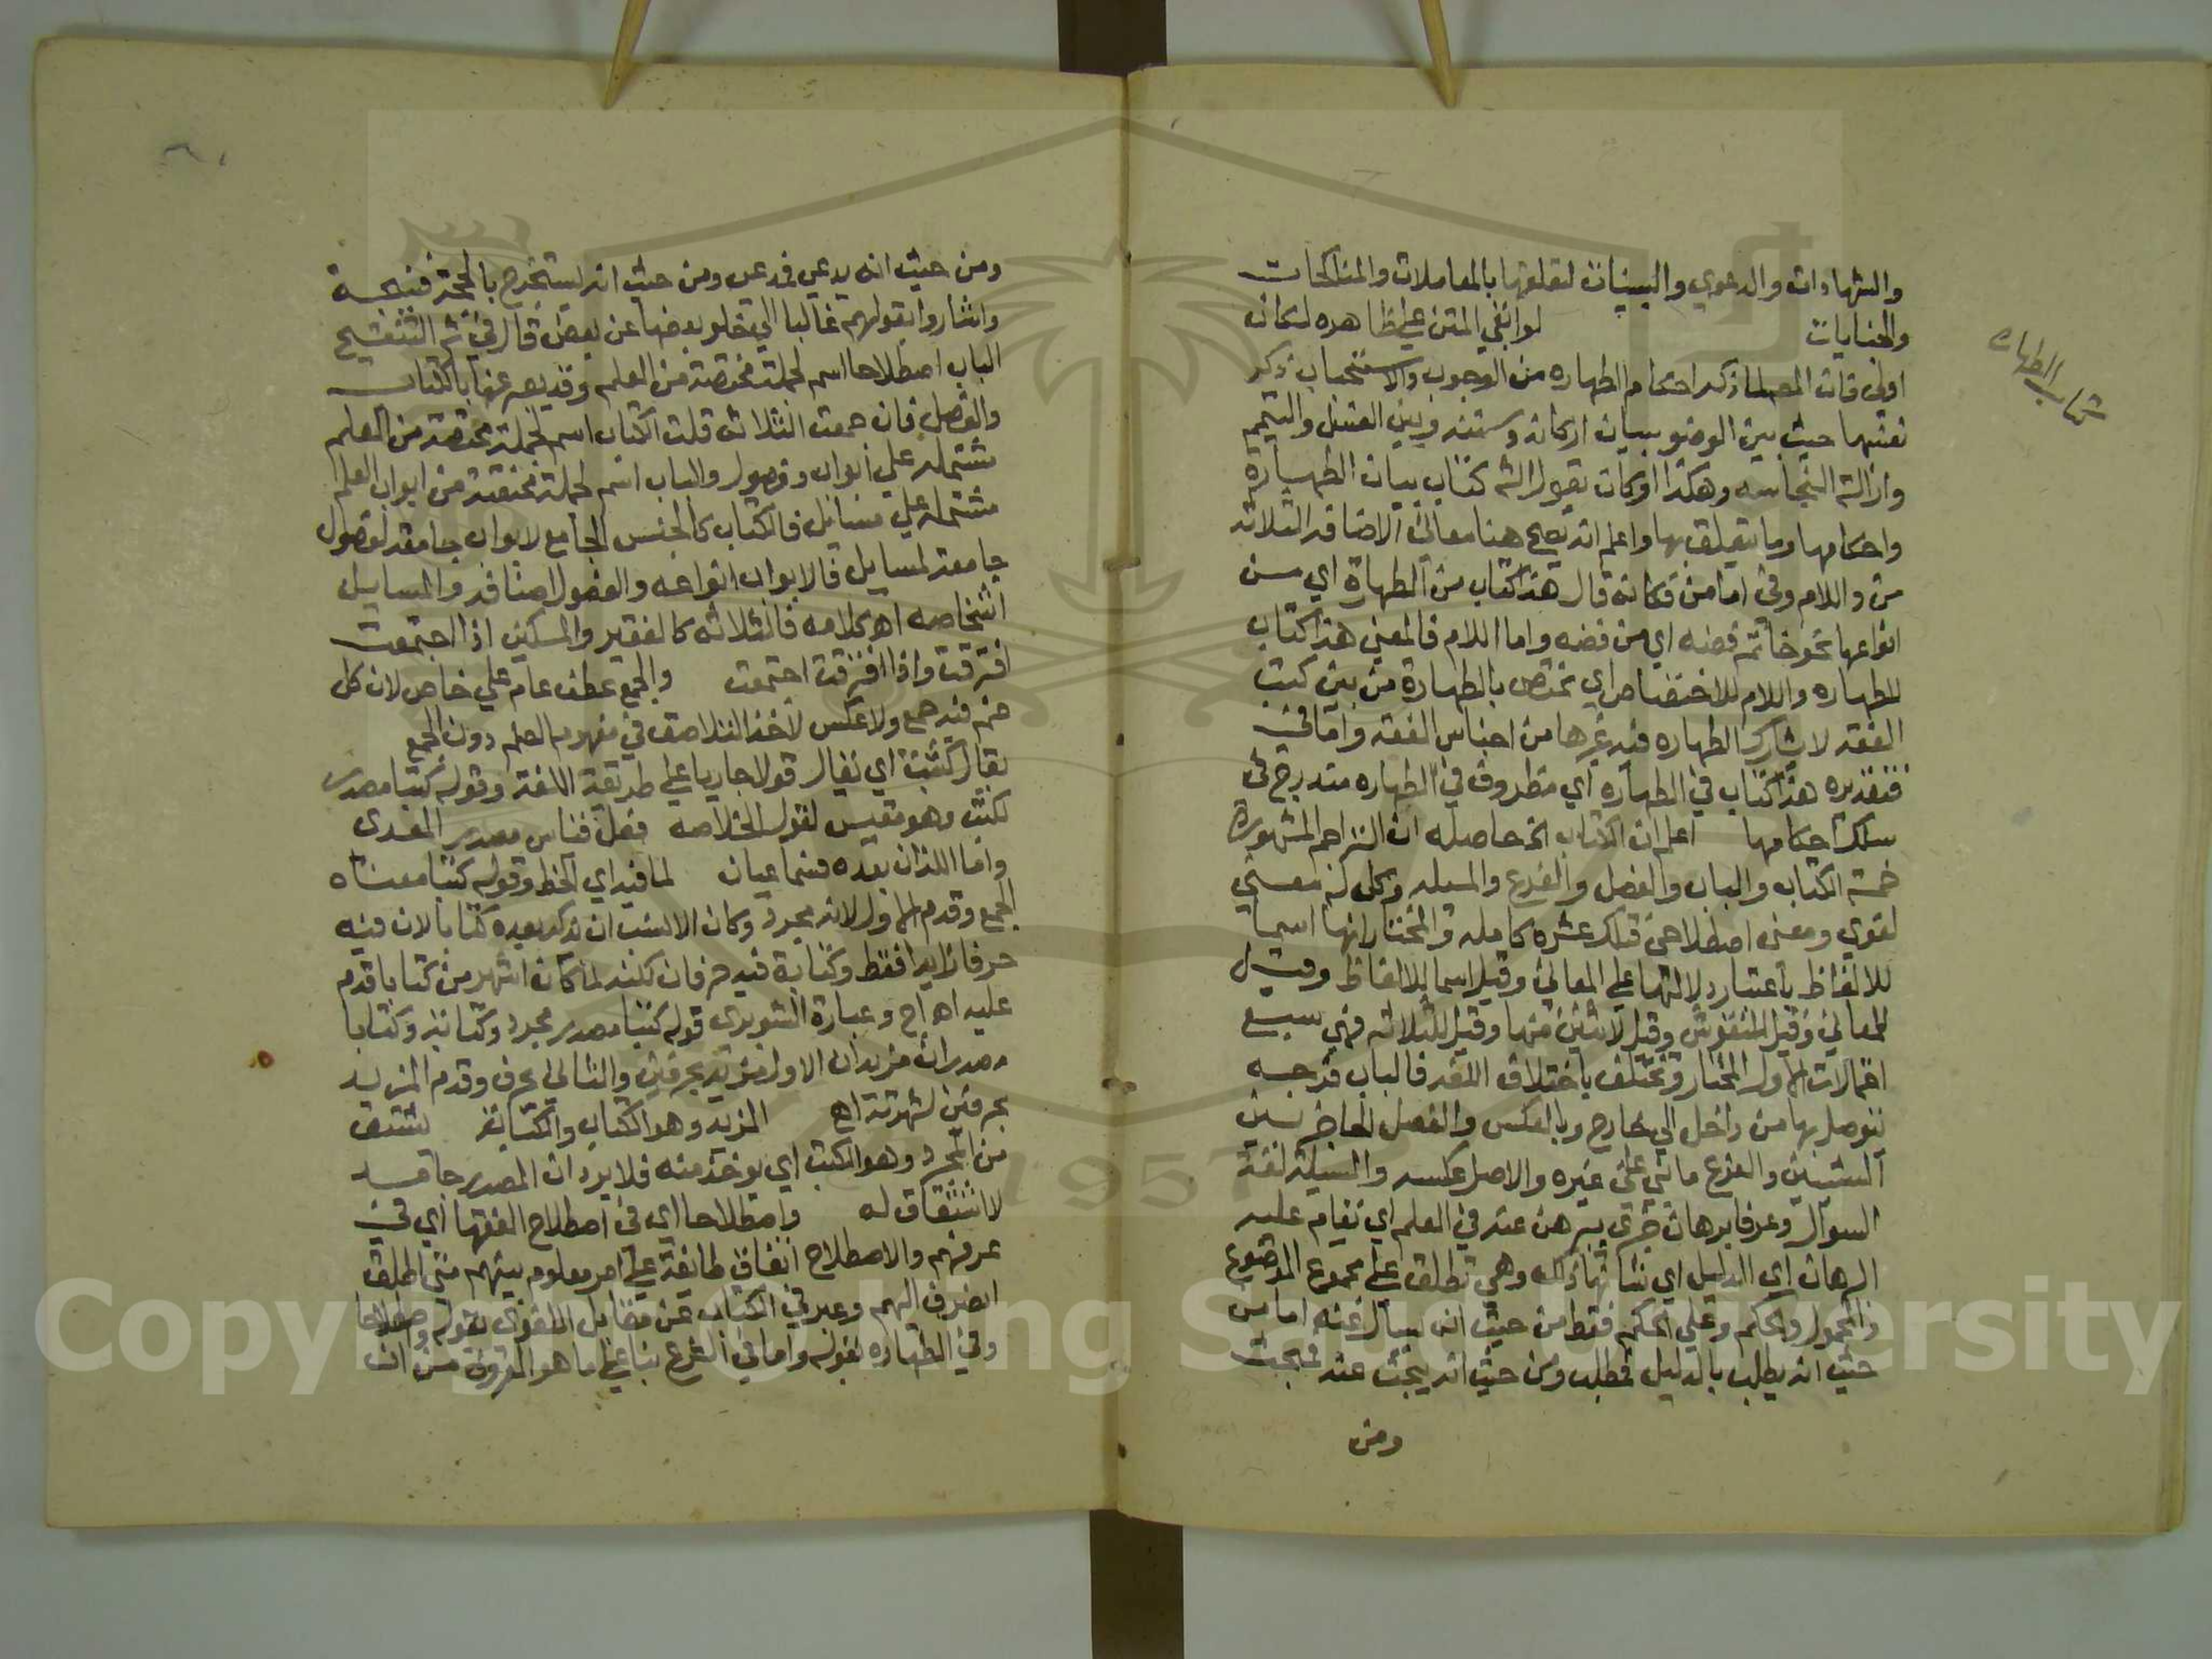 كتاب الطهاره
والشهادات والدعوي والبينات لتعلقها بالمعاملات والمناكحات
والجنايات لو ابقي المتن علي ظاهره لكان
اولي فان المص لما ذكر احكام الطهاره من الوجوب والاستحباب ذكر
نفسها حيث بين الوضو ببيان اركانه وسننه وبين الغسل والتيمم
وازالة النجاسه وهكذا اوكان يقول الش كتاب بيان الطهارة
واحكامها وما يتعلق بها واعلم انه يصح هنا معاني الاضافه الثلاثه
من واللام وفي اما من فكانه قال هذا كتاب من الطهارة اي من
انواعها نحو خاتم فضه اي من فضه واما اللام فالمعني هذا كتاب
للطهاره واللام للاختصاص اي مختص بالطهارة من بين كتب
الفقه لا يشارك الطهاره فيه غيرها من اجناس الفقه واما في
فتقديره هذا كتاب في الطهاره اي مظروف في الطهاره مندرج في
سلك احكامها اعلم ان الكتاب الخ حاصله ان التراجم المشهورة
خمسة الكتاب والباب والفصل والفرع والمسله وكل له معني
لغوي ومعني اصطلاحي فتلك عشره كامله والمختار انها اسما
للالفاظ باعتبار دلالتها علي المعاني وقيل اسما للالفاظ وقيل
للمعاني وقيل للنقوش وقيل لاثنين منها وقيل للثلاثه فهي سبع
احمالات الاول المختار وتختلف باختلاف اللغه فالباب فرجه
يتوصل بها من داخل الي خارج وبالعكس والفصل الحاجز بين
الشيئين والفرع ما بني علي غيره والاصل عكسه والمسيلة لغة
السوال وعرفا برهان خبري يبرهن عنه في العلم اي يقام عليه
البرهان اي الدليل اي شانها ذلك وهي تطلق علي مجموع الموضوع
والمحمول والحكم وعلي الحكم فقط من حيث انه يسأل عنه اما من
حيث انه يطلب بالدليل فمطلب ومن حيث انه يبحث عنه فمبحث
ومن
ومن حيث انه يدعي فمدعي ومن حيث انه يستخرج بالحجة فنتيجة
واشاروا بقولهم غالبا الي خلو بعضها عن بعض قال في ش التنقيح
الباب اصطلاحا اسم لجملة مختصة من العلم وقد يعبر عنها بالكتاب
والفصل فان جمعت الثلاثه قلت الكتاب اسم لجملة مختصة من العلم
مشتمله علي ابواب وفصول والباب اسم لجملة مختصة من ابواب العلم
مشتمله علي مسايل فالكتاب كالجنس الجامع لابواب جامعة لفصول
جامعة لمسايل فالابواب انواعه والفصول اصنافه والمسايل
اشخاصه اهـ كلامه فالثلاثه كالفقير والمسكين اذا اجتمعت
افترقت واذا افترقت اجتمعت والجمع عطف عام علي خاص لان كل
ضم فيه جمع ولا عكس لاخذ التلاصق في مفهوم الضم دون الجمع
يقال كتبت اي يقال قولا جاريا علي طريقة اللغة وقوله كتبا مصدر
لكتب وهو مقيس لقول الخلاصه فعل قياس مصدر المعدي
واما اللذان بعده فسماعيان لما فيه اي الخط وقوله كتبا معناه
الجمع وقدم الاول لانه مجرد وكان الانسب ان يذكر بعده كتابا لان فيه
حرفا زايدا فقط وكتابة فيه حرفان لكنه لما كان اشهر من كتابا قدم
عليه اهـ اج وعبارة الشوبري قوله كتبا مصدر مجرد وكتابة وكتابا
مصدران مزيدان الاول مزيد بحرفين والثاني بحرف وقدم المزيد
بحرفين لشهرته اج المزيد وهو الكتاب والكتابة لشتق
من المجرد وهو الكتب اي يوخذ منه فلا يرد ان المصدر جامد
لا اشتقاق له واصطلاحا اي في اصطلاح الفقها اي في
عرفهم والاصطلاح اتفاق طايفة علي امر معلوم بينهم متي اطلق
انصرف اليهم وعبر في الكتاب عن مقابل اللغوي بقوله واصطلاحا
وفي الطهاره بقوله واما في الشرع بنا علي ما هو المعروف من ان